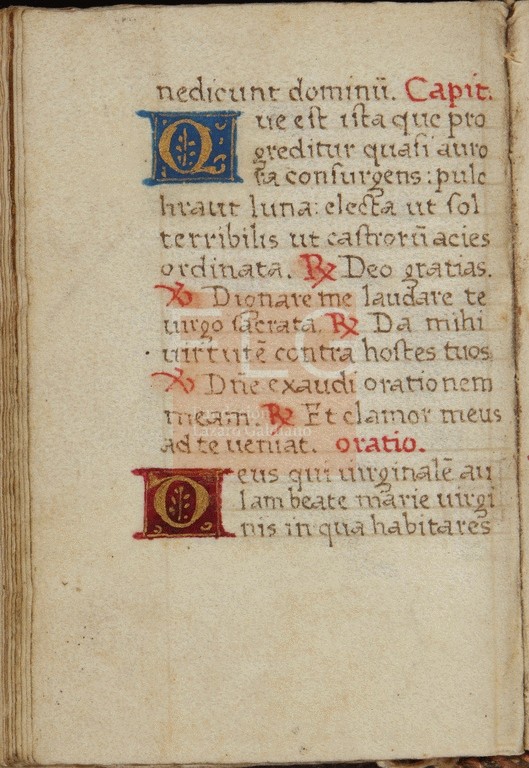 nedicunt dominū. Capit.
Que est ista que pro
greditur quasi auro
ra consurgens: pulc
hra ut luna: electa ut sol
terribilis ut castrorū acies
ordinata. ℟ Deo gratias.
℣ Dignare me laudare te
uirgo sacrata. ℟ Da mihi
uirtutē contra hostes tuos
℣ Dne exaudi orationem
meam. ℟ Et clamor meus
ad te ueniat. oratio.
Deus qui uirginalē au
lam beate marie uirgi
nis in qua habitares
FLG
Lázaro Galdiano